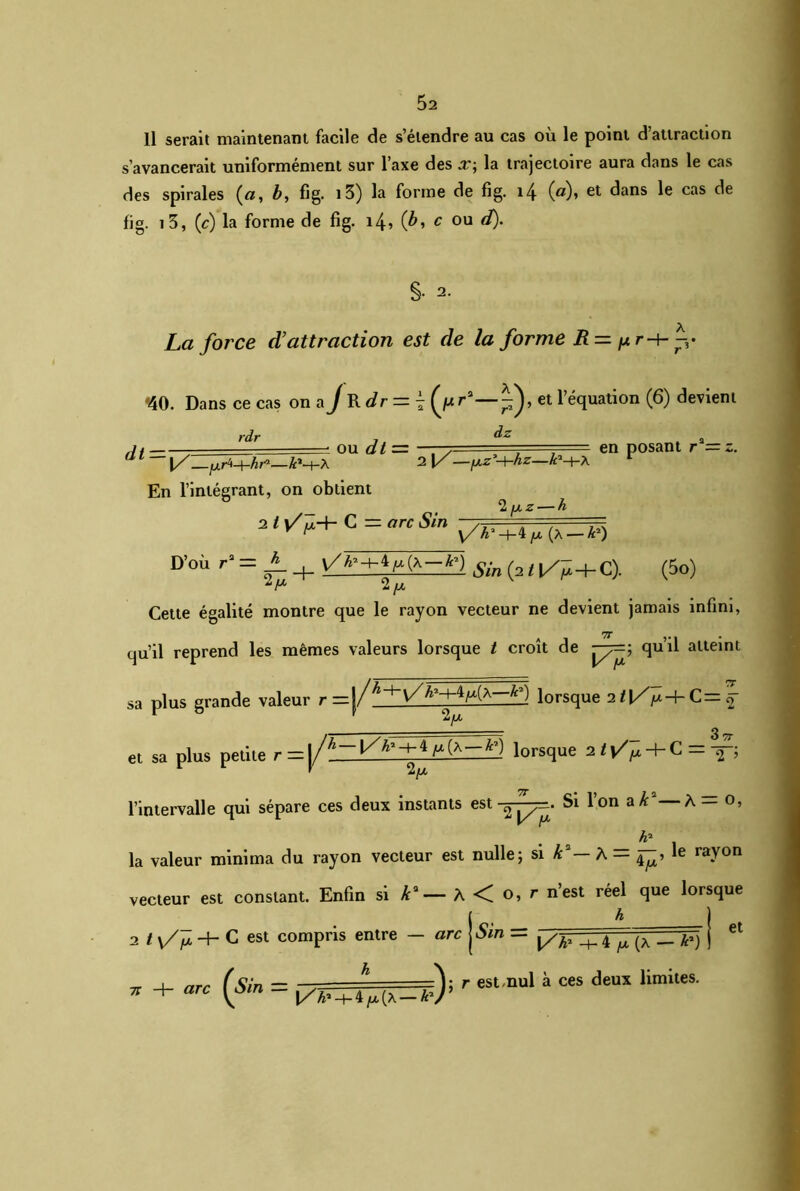 52
Il serait maintenant facile de s'étendre au cas où le point d'attraction
s'avancerait uniformément sur l'axe des x; la trajectoire aura dans le cas
des spirales (a, b, fig. 13) la forme de fig. 14 (a), et dans le cas de
fig. 13, (c) la forme de fig. 14, (b, c ou d).
§. 2.
La force d'attraction est de la forme R = μ r + λ/r³.
40. Dans ce cas on a ∫ R dr = ½ (μ r² — λ/r²), et l'équation (6) devient
dt = rdr / √(—μr⁴+hr²—k²+λ) ou dt = dz / 2 √(—μz²+hz—k²+λ) en posant r² = z.
En l'intégrant, on obtient
2 t √μ + C = arc Sin (2 μ z — h) / √(h² + 4 μ (λ — k²))
D'où r² = h/2μ + √(h² + 4 μ (λ — k²))/2 μ Sin (2 t √μ + C). (50)
Cette égalité montre que le rayon vecteur ne devient jamais infini,
qu'il reprend les mêmes valeurs lorsque t croît de π/√μ; qu'il atteint
sa plus grande valeur r = √((h + √(h²+4μ(λ—k²)))/2μ) lorsque 2 t √μ + C = π/2
et sa plus petite r = √((h — √(h² + 4 μ (λ — k²)))/2μ) lorsque 2 t √μ + C = 3π/2;
l'intervalle qui sépare ces deux instants est π/2√μ. Si l'on a k² — λ = 0,
la valeur minima du rayon vecteur est nulle; si k² — λ = h²/4μ, le rayon
vecteur est constant. Enfin si k² — λ < 0, r n'est réel que lorsque
2 t √μ + C est compris entre — arc {Sin = h / √(h² + 4 μ (λ — k²))} et
π + arc (Sin = h / √(h² + 4 μ (λ — k²)); r est nul à ces deux limites.